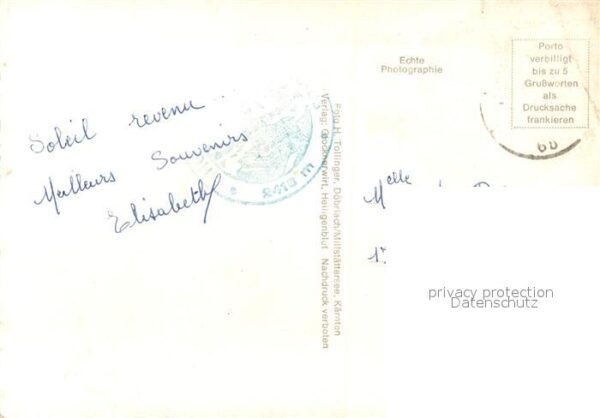 Soleil revenu..
Meilleurs Souvenirs
Elisabeth
2410 m
Foto H. Tollinger, Döbriach/Millstättersee, Kärnten
Verlag: Glocknerwirt, Heiligenblut Nachdruck verboten
Echte
Photographie
Porto
verbilligt
bis zu 5
Grußworten
als
Drucksache
frankieren
60
Melle
privacy protection
Datenschutz